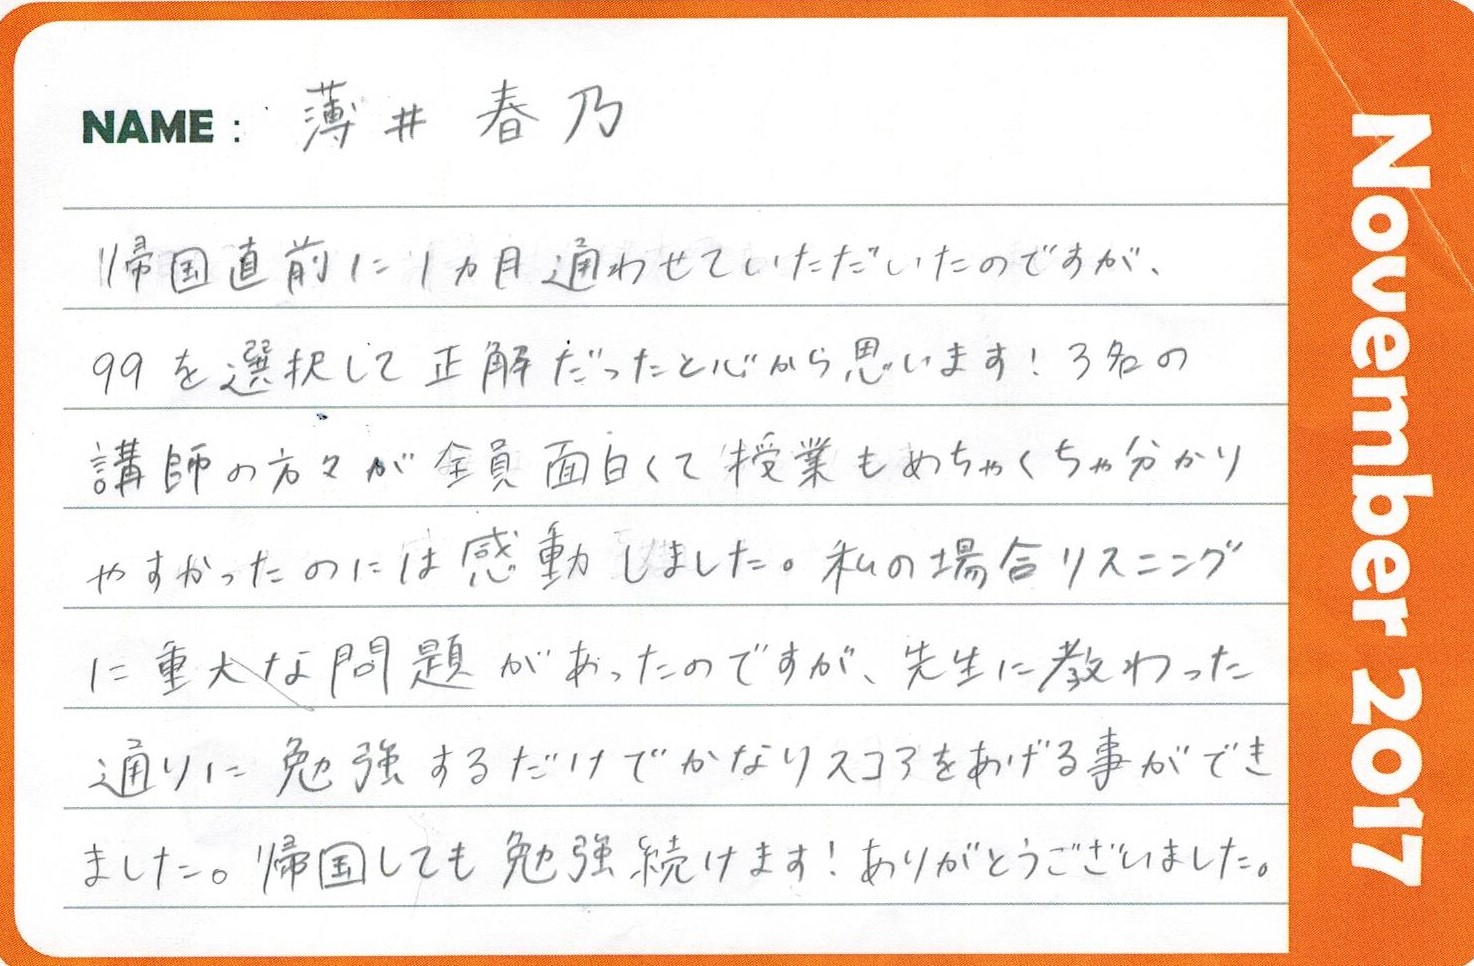 NAME : 薄井 春乃
帰国直前に1カ月通わせていただいたのですが、
99を選択して正解だったと心から思います！3名の
講師の方々が全員面白くて授業もめちゃくちゃ分かり
やすかったのには感動しました。私の場合リスニング
に重大な問題があったのですが、先生に教わった
通りに勉強するだけでかなりスコアをあげる事ができ
ました。帰国しても勉強続けます！ありがとうございました。
November 2017